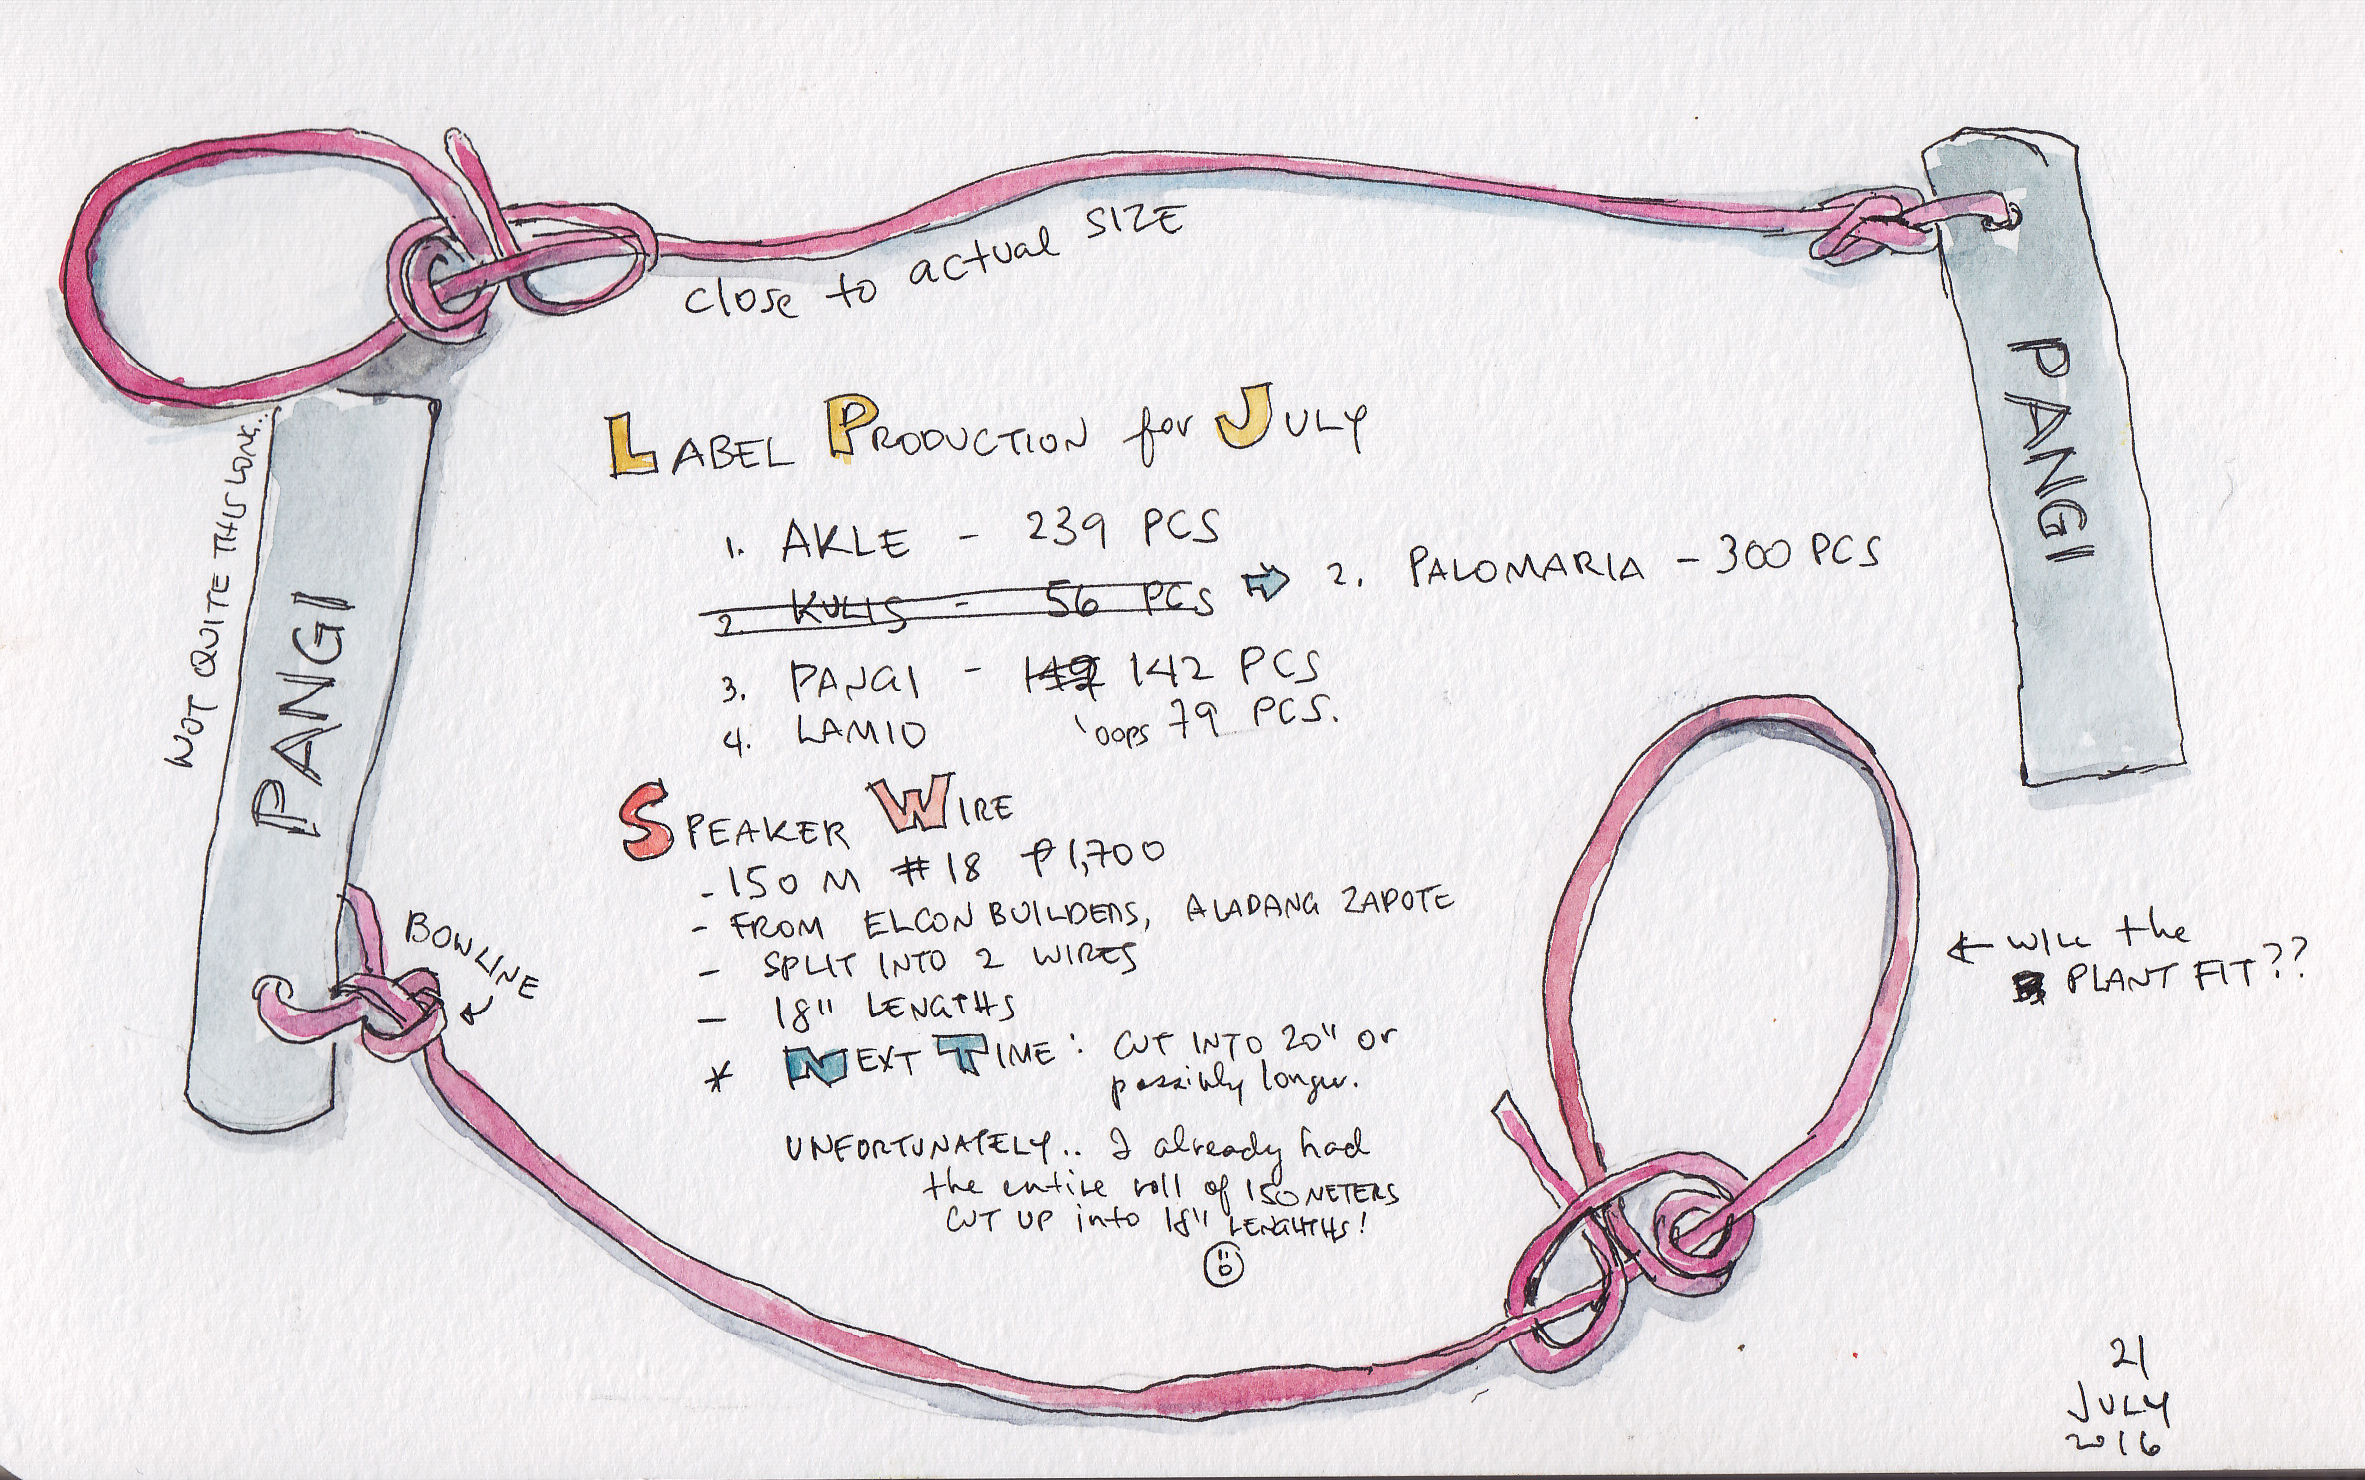 close to actual SIZE
PANGI
NOT QUITE THIS LONG..
PANGI
BOWLINE
LABEL PRODUCTION for JULY
1. AKLE - 239 PCS
2 KULIS - 56 PCS → 2. PALOMARIA - 300 PCS
3. PANGI - 149 142 PCS
4. LAMIO 'oops 79 PCS.
SPEAKER WIRE
- 150 M #18 ₱1,700
- FROM ELCON BUILDERS, ALABANG ZAPOTE
- SPLIT INTO 2 WIRES
- 18" LENGTHS
* NEXT TIME: CUT INTO 20" or
possibly longer.
UNFORTUNATELY.. I already had
the entire roll of 150 METERS
CUT UP into 18" LENGHTHS!
← WILL the
PLANT FIT??
21
JULY
2016